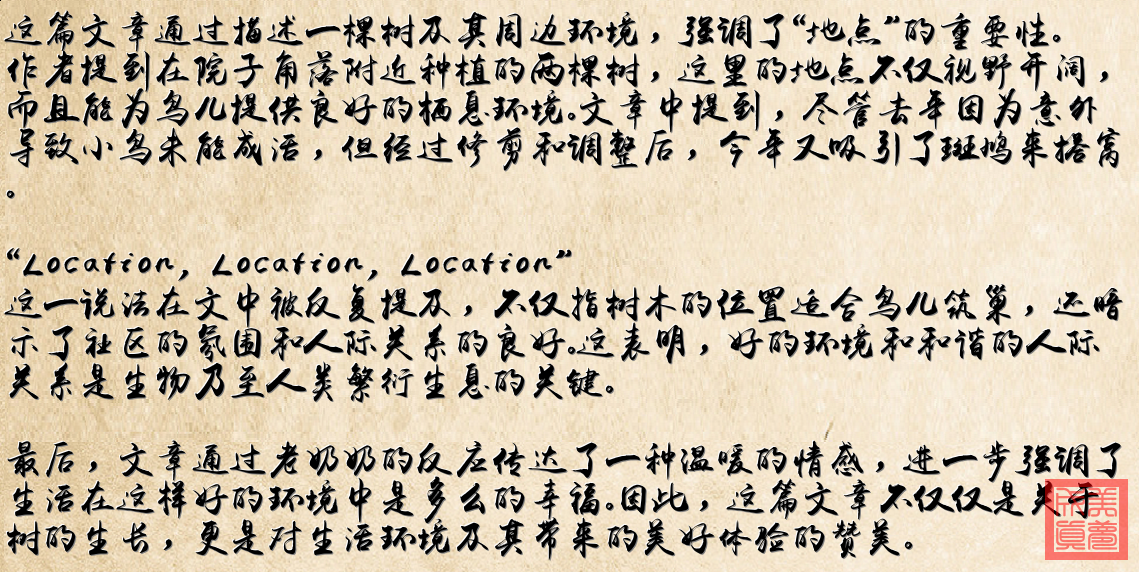 这篇文章通过描述一棵树及其周边环境，强调了“地点”的重要性。
作者提到在院子角落附近种植的两棵树，这里的地点不仅视野开阔，
而且能为鸟儿提供良好的栖息环境。文章中提到，尽管去年因为意外
导致小鸟未能成活，但经过修剪和调整后，今年又吸引了斑鸠来搭窝
。
“Location, Location, Location”
这一说法在文中被反复提及，不仅指树木的位置适合鸟儿筑巢，还暗
示了社区的氛围和人际关系的良好。这表明，好的环境和和谐的人际
关系是生物乃至人类繁衍生息的关键。
最后，文章通过老奶奶的反应传达了一种温暖的情感，进一步强调了
生活在这样好的环境中是多么的幸福。因此，这篇文章不仅仅是关于
树的生长，更是对生活环境及其带来的美好体验的赞美。